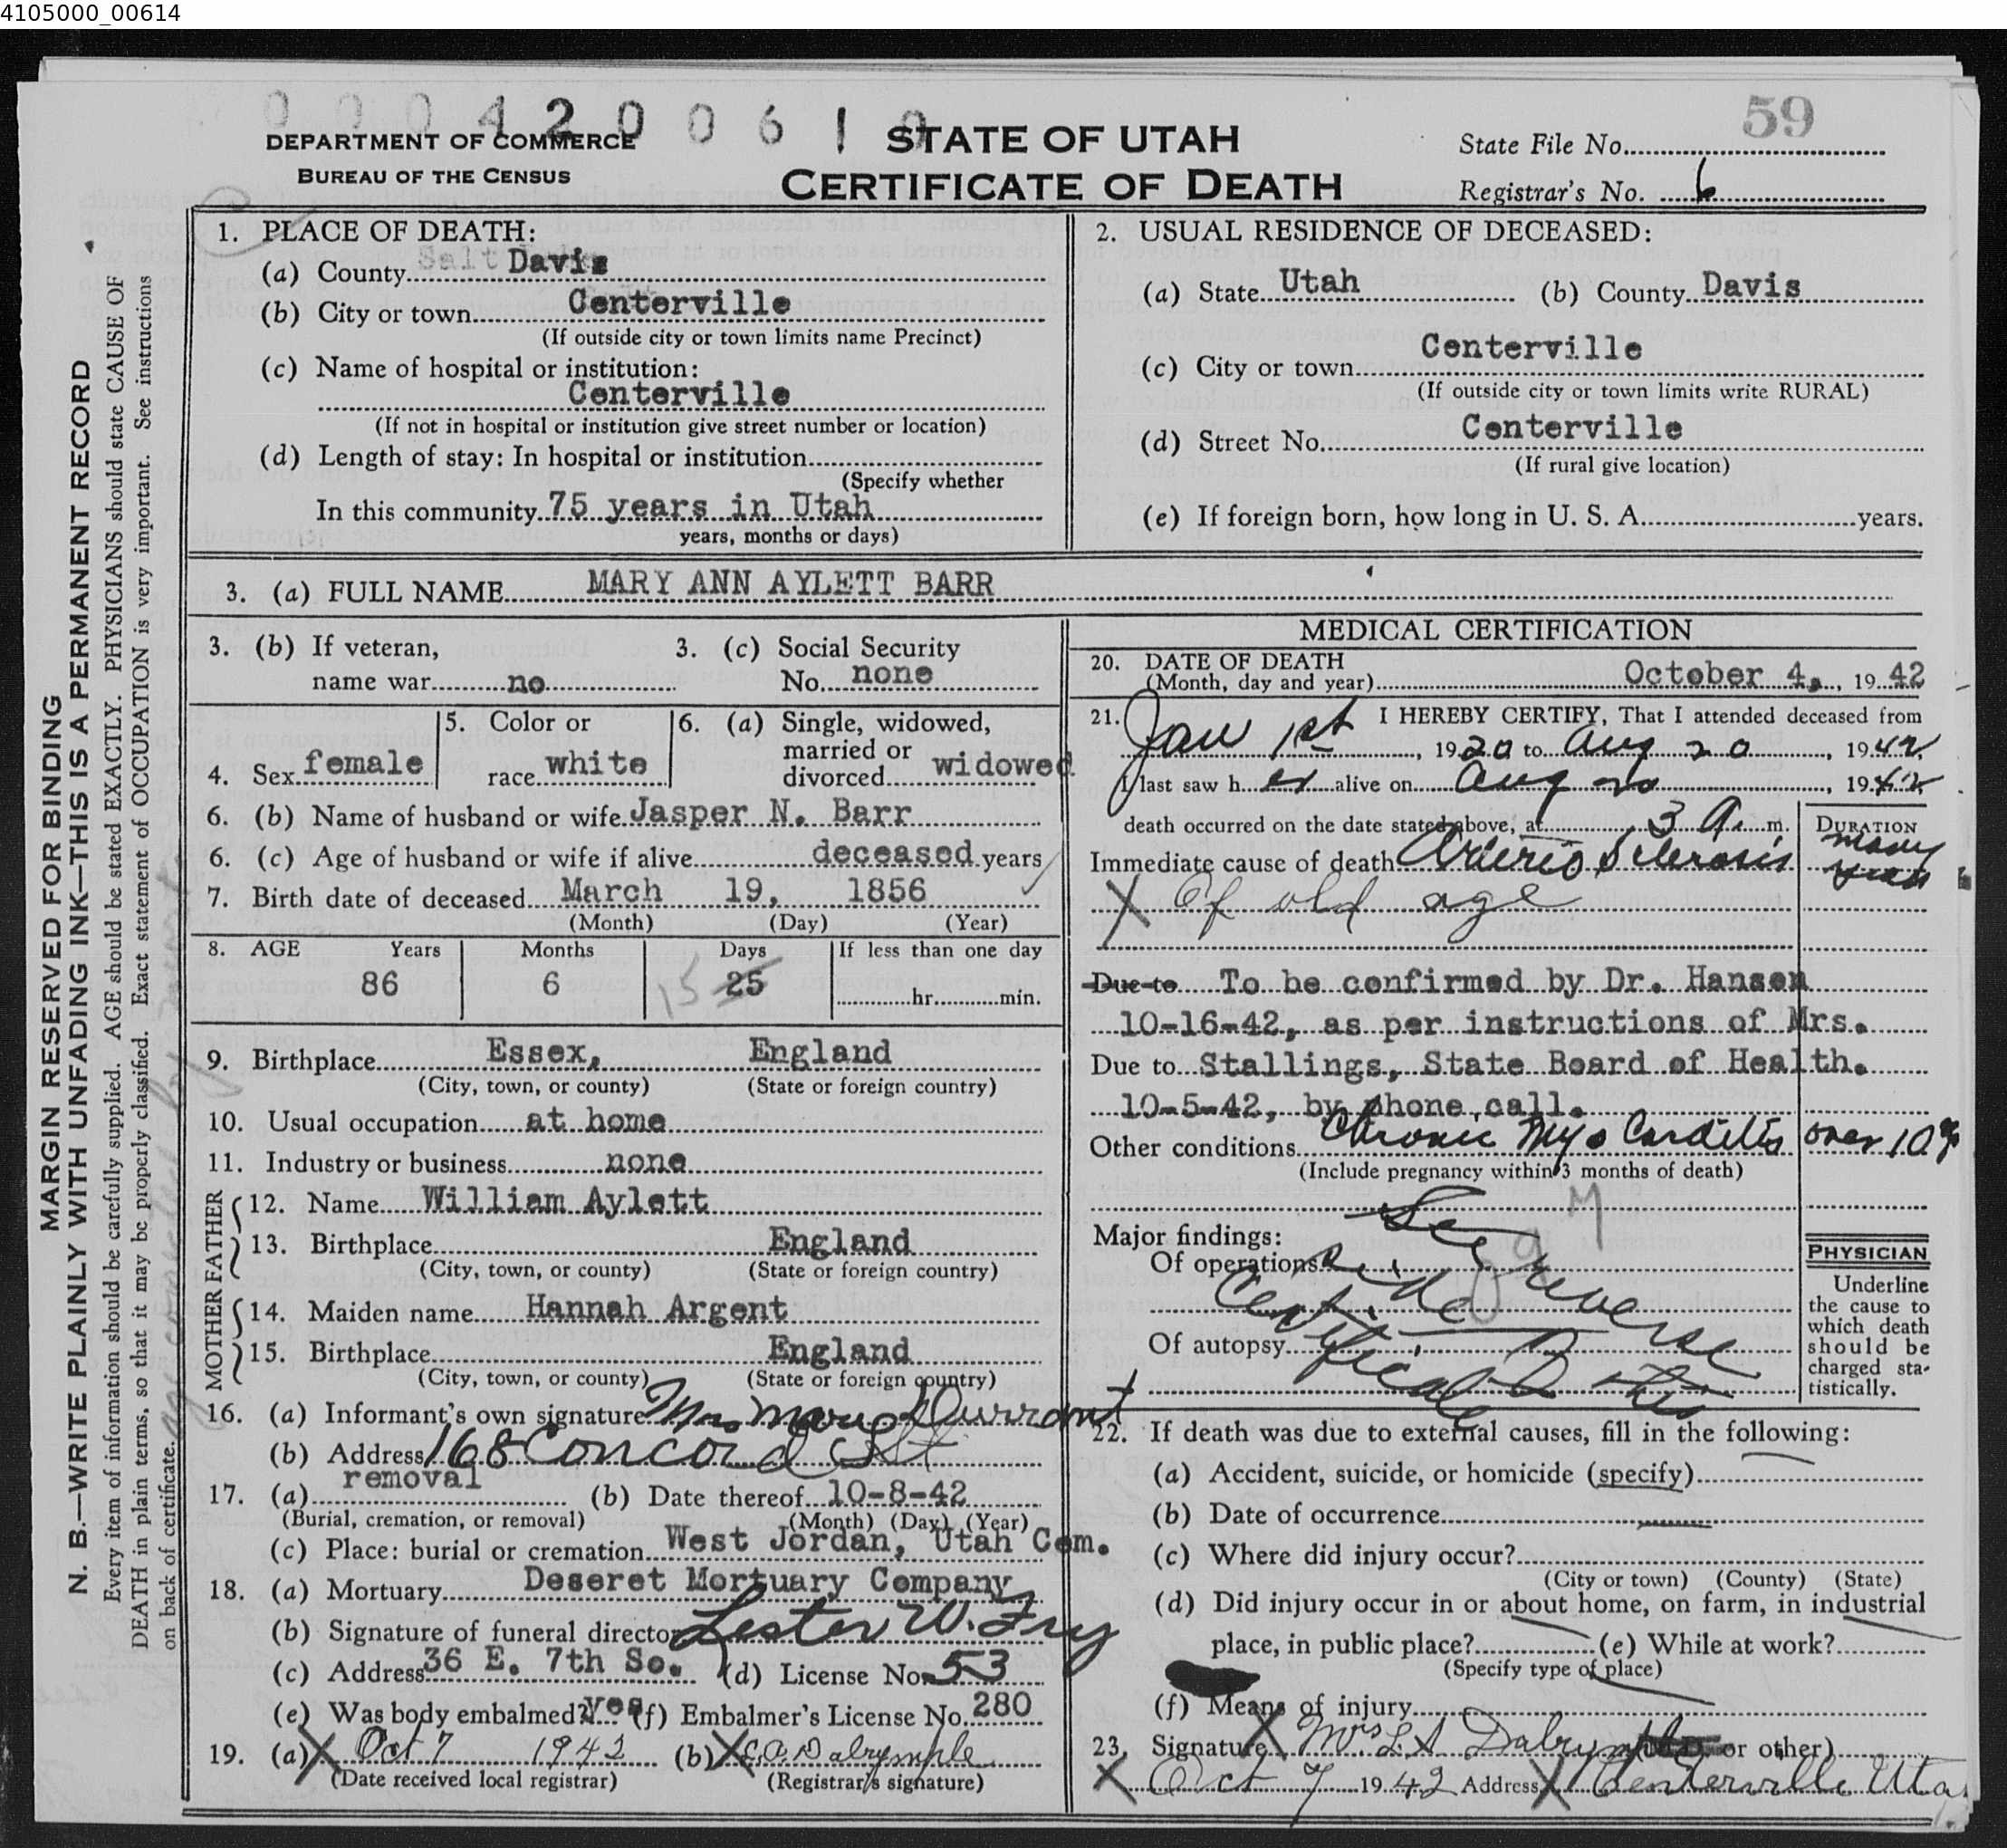 4105000_00614
0 0 0 4 2 0 0 6 1 0
59
DEPARTMENT OF COMMERCE
BUREAU OF THE CENSUS
STATE OF UTAH
CERTIFICATE OF DEATH
State File No.
Registrar's No. 6
MARGIN RESERVED FOR BINDING
N. B.—WRITE PLAINLY WITH UNFADING INK—THIS IS A PERMANENT RECORD
Every item of information should be carefully supplied. AGE should be stated EXACTLY. PHYSICIANS should state CAUSE OF
DEATH in plain terms, so that it may be properly classified. Exact statement of OCCUPATION is very important. See instructions
on back of certificate.
1. PLACE OF DEATH:
(a) County Salt Davis
(b) City or town Centerville
(If outside city or town limits name Precinct)
(c) Name of hospital or institution:
Centerville
(If not in hospital or institution give street number or location)
(d) Length of stay: In hospital or institution
(Specify whether
In this community 75 years in Utah
years, months or days)
2. USUAL RESIDENCE OF DECEASED:
(a) State Utah (b) County Davis
(c) City or town Centerville
(If outside city or town limits write RURAL)
(d) Street No. Centerville
(If rural give location)
(e) If foreign born, how long in U. S. A. years.
3. (a) FULL NAME MARY ANN AYLETT BARR
3. (b) If veteran,
name war no
3. (c) Social Security
No. none
4. Sex female
5. Color or
race white
6. (a) Single, widowed,
married or
divorced widowed
6. (b) Name of husband or wife Jasper N. Barr
6. (c) Age of husband or wife if alive deceased years
7. Birth date of deceased March 19, 1856
(Month) (Day) (Year)
8. AGE Years Months Days If less than one day
86 6 15 25 hr. min.
9. Birthplace Essex, England
(City, town, or county) (State or foreign country)
10. Usual occupation at home
11. Industry or business none
FATHER
12. Name William Aylett
13. Birthplace England
(City, town, or county) (State or foreign country)
MOTHER
14. Maiden name Hannah Argent
15. Birthplace England
(City, town, or county) (State or foreign country)
16. (a) Informant's own signature Mrs Mary Durrant
(b) Address 168 Concord St
17. (a) removal (b) Date thereof 10-8-42
(Burial, cremation, or removal) (Month) (Day) (Year)
(c) Place: burial or cremation West Jordan, Utah Cem.
18. (a) Mortuary Deseret Mortuary Company
(b) Signature of funeral director Lester W. Fry
(c) Address 36 E. 7th So. (d) License No. 53
(e) Was body embalmed? yes (f) Embalmer's License No. 280
19. (a) X Oct 7 1942 (b) X Dalrymple
(Date received local registrar) (Registrar's signature)
MEDICAL CERTIFICATION
20. DATE OF DEATH
(Month, day and year) October 4, 19 42
21. I HEREBY CERTIFY, That I attended deceased from
Jan 1st, 19 20 to Aug 20, 19 42
I last saw h er alive on Aug 20, 19 42
death occurred on the date stated above, at 3 A. m.
DURATION
Immediate cause of death Arterio Sclerosis many years
X Of old age
Due to To be confirmed by Dr. Hansen
10-16-42, as per instructions of Mrs.
Due to Stallings, State Board of Health.
10-5-42, by phone call.
Other conditions Chronic Myo Carditis over 10 y
(Include pregnancy within 3 months of death)
Major findings:
Of operations
Of autopsy
See reverse
side
Certificate
PHYSICIAN
Underline
the cause to
which death
should be
charged sta-
tistically.
22. If death was due to external causes, fill in the following:
(a) Accident, suicide, or homicide (specify)
(b) Date of occurrence
(c) Where did injury occur?
(City or town) (County) (State)
(d) Did injury occur in or about home, on farm, in industrial
place, in public place? (e) While at work?
(Specify type of place)
(f) Means of injury
23. Signature X Mrs L A Dalrymple or other)
X Oct 7 19 42 Address X Centerville Utah